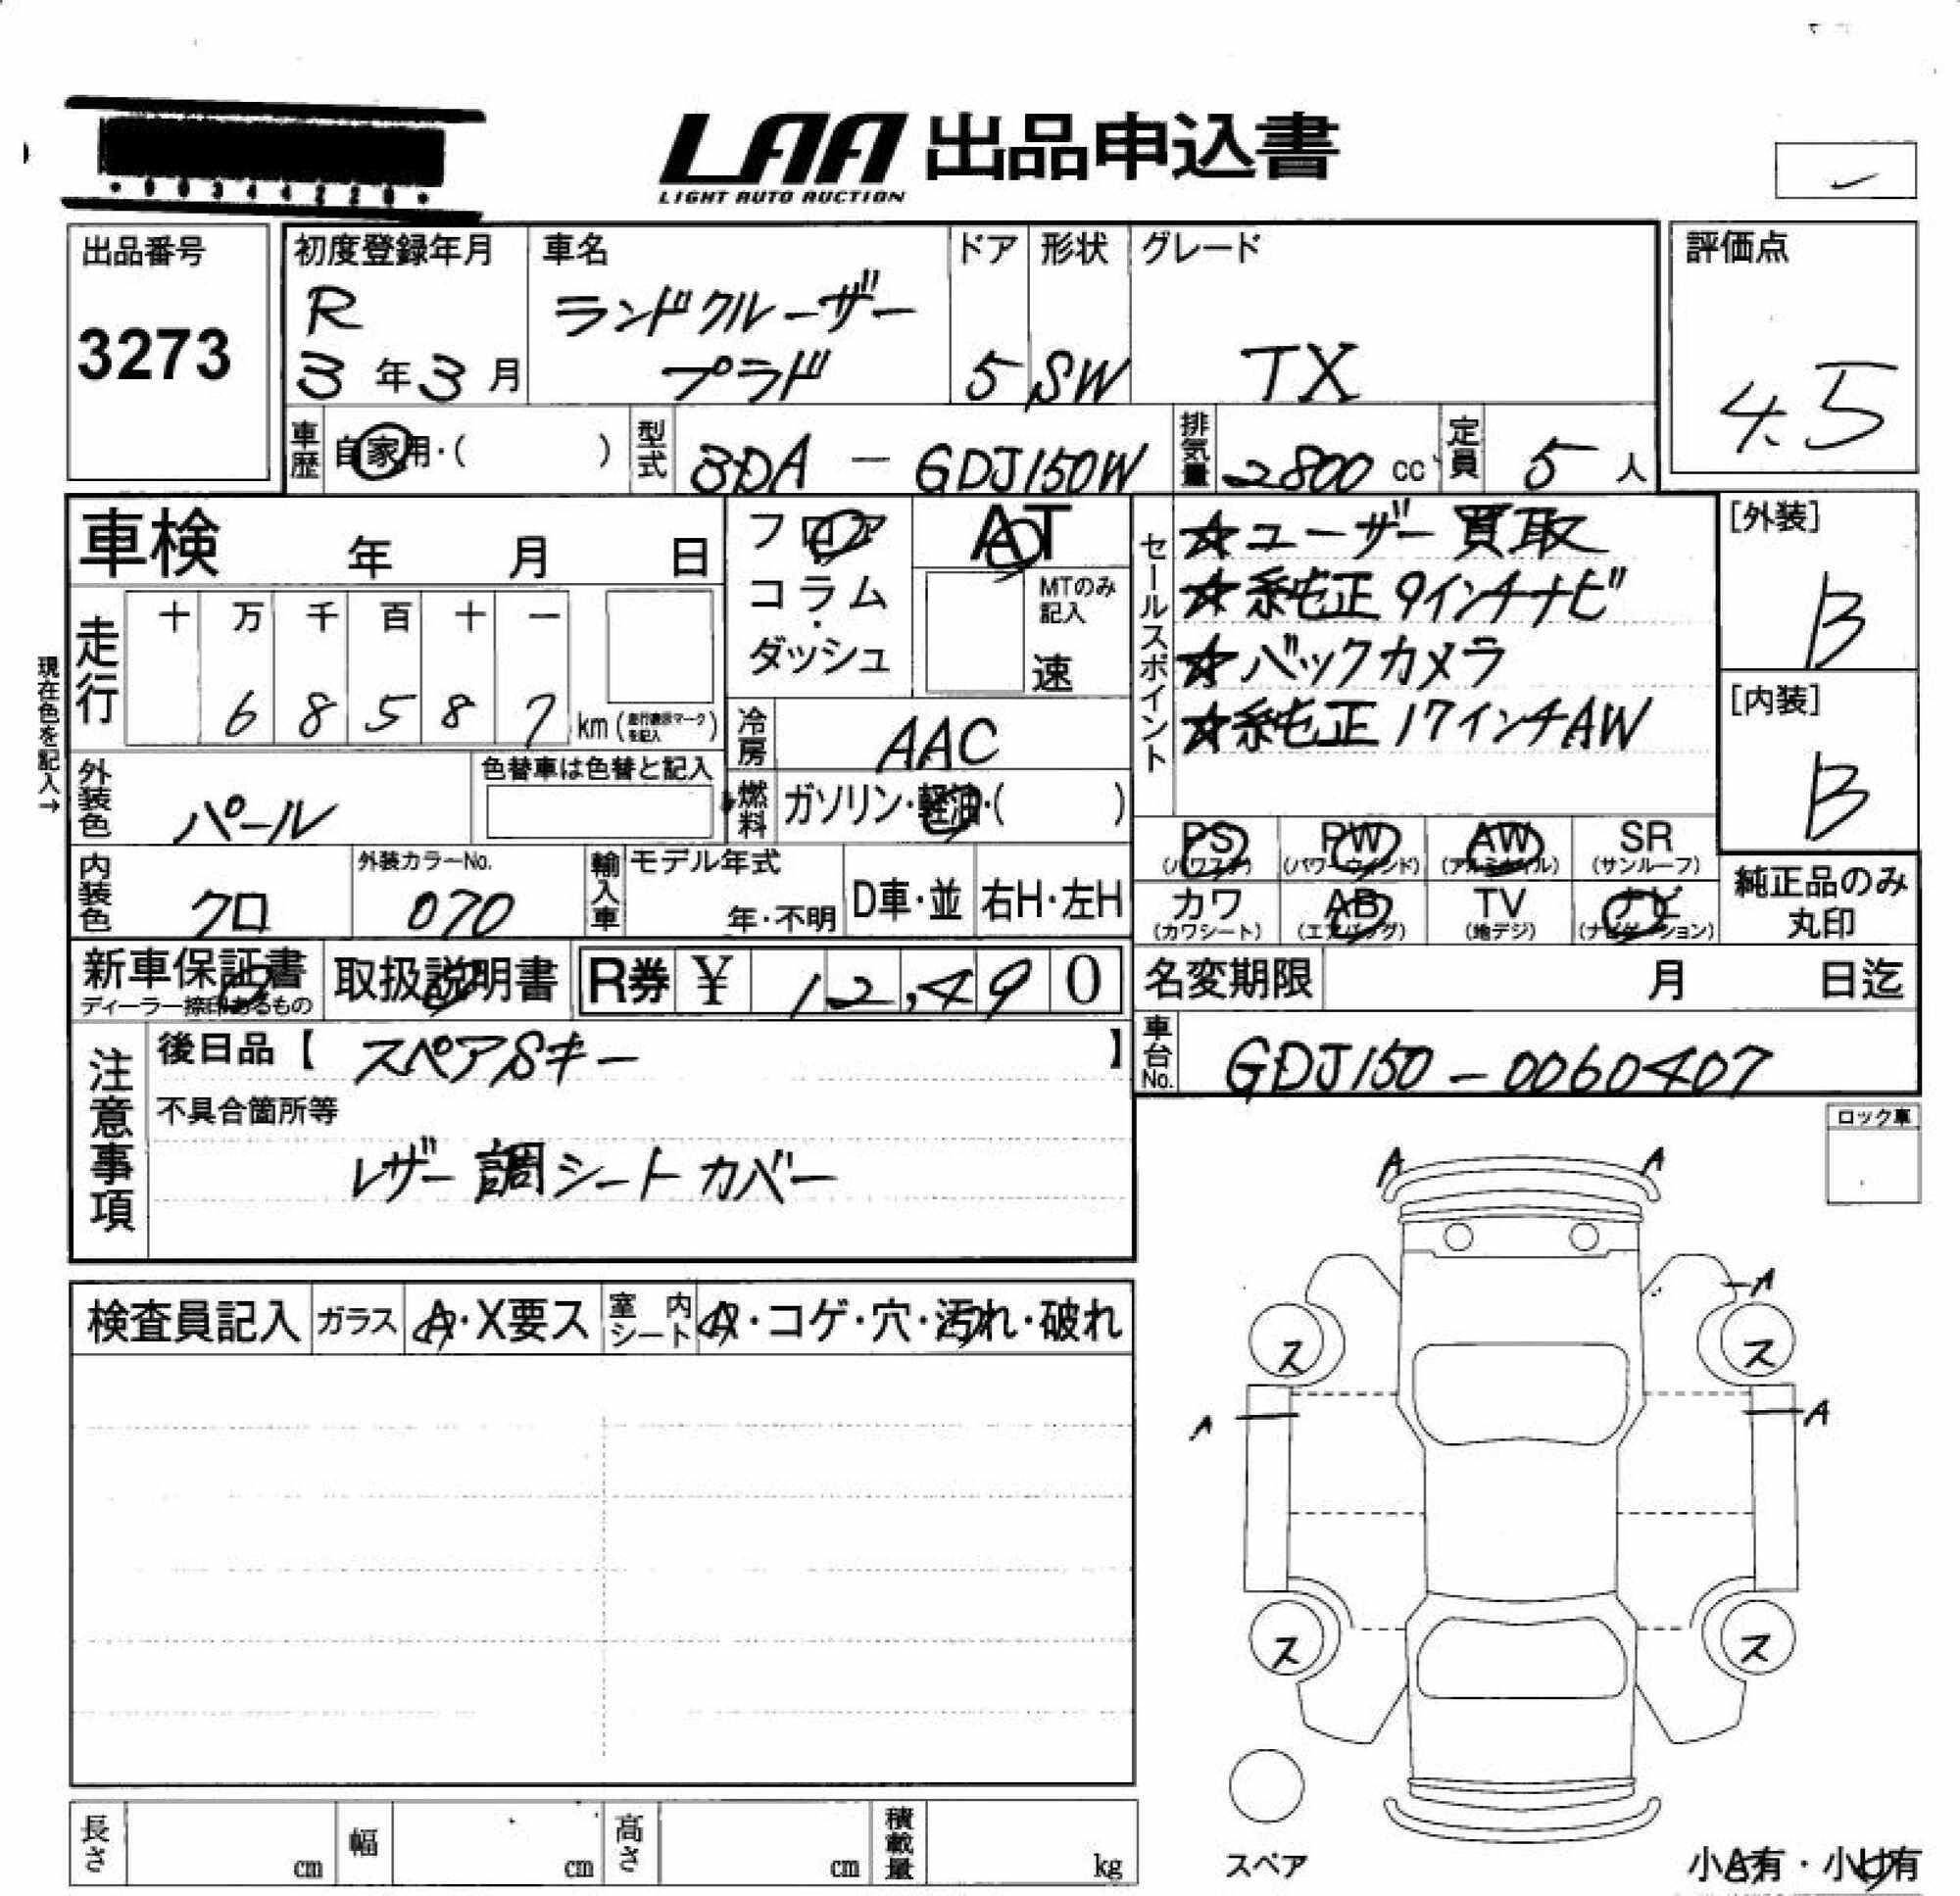 ・00344220・
LAA 出品申込書
LIGHT AUTO AUCTION
出品番号
3273
初度登録年月
R
3年3月
車名
ランドクルーザー
プラド
ドア
5
形状
SW
グレード
TX
評価点
4.5
車歴 自家用・( )
型式 3DA - GDJ150W
排気量 2800 cc
定員 5人
車検 年 月 日
フロア
コラム・ダッシュ
AT
MTのみ記入
速
走行
十 万 千 百 十 一
6 8 5 8 7 km (走行表示マークを記入)
現在色を記入→
冷房 AAC
燃料 ガソリン・軽油・( )
外装色 パール
色替車は色替と記入
内装色 クロ
外装カラーNo.
070
輸入車 モデル年式
年・不明
D車・並
右H・左H
セールスポイント
☆ユーザー買取
☆純正9インチナビ
☆バックカメラ
☆純正17インチAW
[外装]
B
[内装]
B
PS (パワステ) PW (パワーウィンド) AW (アルミホイル) SR (サンルーフ)
カワ (カワシート) AB (エアバッグ) TV (地デジ) ナビ (ナビゲーション)
純正品のみ
丸印
新車保証書
ディーラー捺印あるもの
取扱説明書
R券 ¥ 12,490
名変期限 月 日迄
車台No. GDJ150-0060407
注意事項
後日品【 スペアSキー 】
不具合箇所等
レザー調シートカバー
ロック車
検査員記入 ガラス A・X要ス 室内シート A・コゲ・穴・汚れ・破れ
A A
A
ス ス
A A
ス ス
スペア
小A有・小U有
長さ cm 幅 cm 高さ cm 積載量 kg